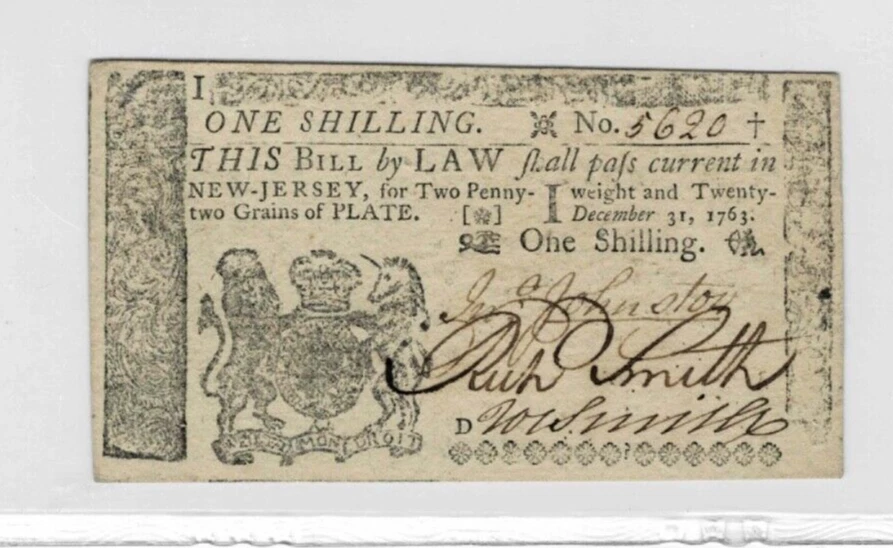 I
ONE SHILLING. No. 5620 †
THIS BILL by LAW ſhall paſs current in
NEW-JERSEY, for Two Penny- I weight and Twenty-
two Grains of PLATE. [ ] December 31, 1763.
One Shilling.
Jno. Johnston
Rich Smith
D W Smith
MON DROIT